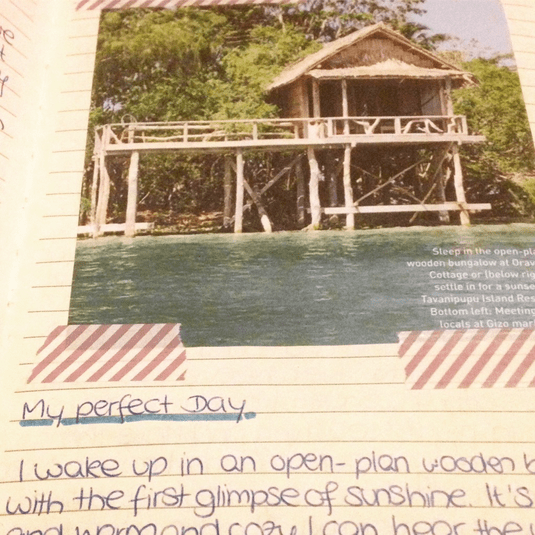 Sleep in the open-pl
wooden bungalow at Orav
Cottage or (below rig
settle in for a sunse
Tavanipupu Island Res
Bottom left: Meeting
locals at Gizo mar
My perfect Day
I wake up in an open-plan wooden b
with the first glimpse of sunshine. It's
and warm and cozy I can hear the